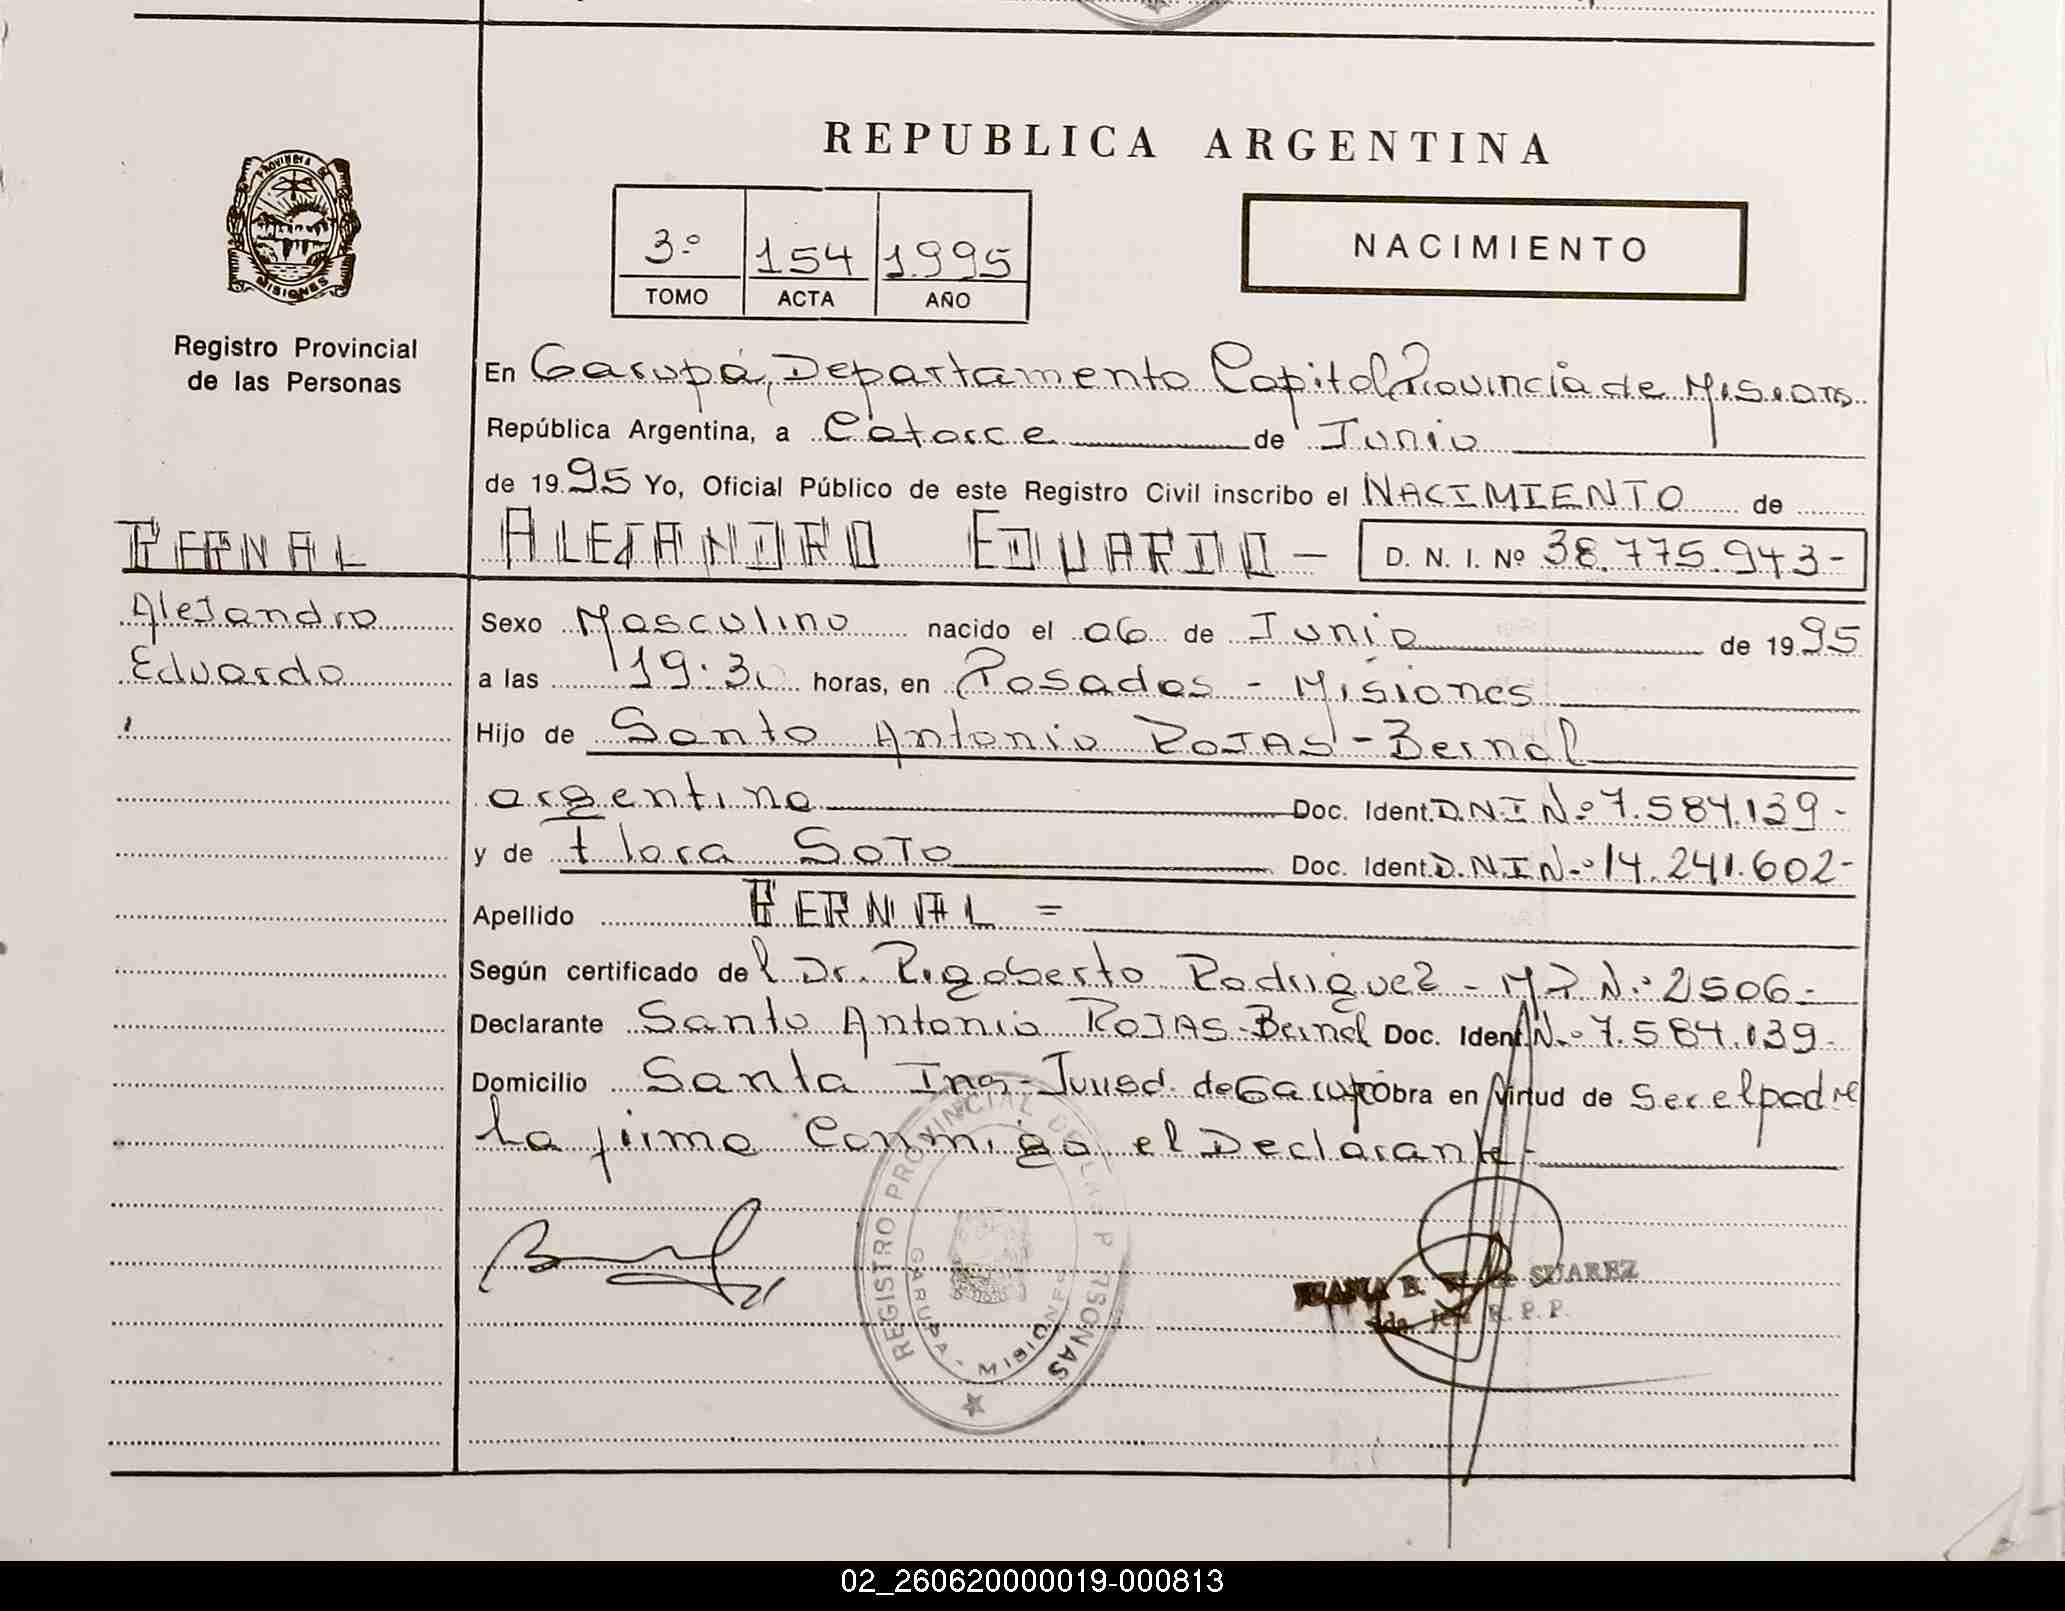 REPUBLICA ARGENTINA
PROVINCIA DE
MISIONES
Registro Provincial
de las Personas
3º 154 1995
TOMO ACTA AÑO
NACIMIENTO
En Garupá, Departamento Capital Provincia de Misiones
República Argentina, a Catorce de Junio
de 1995 Yo, Oficial Público de este Registro Civil inscribo el NACIMIENTO de
BERNAL
ALEJANDRO EDUARDO — D. N. I. Nº 38.775.943-
Alejandro
Eduardo
Sexo Masculino nacido el 06 de Junio de 1995
a las 19:30 horas, en Posadas - Misiones
Hijo de Santo Antonio ROJAS - Bernal
argentino Doc. Ident. D.N.I Nº 7.584.139-
y de Flora SOTO Doc. Ident. D.N.I Nº 14.241.602-
Apellido BERNAL =
Según certificado del Dr. Rigoberto Rodriguez - MP Nº 2506-
Declarante Santo Antonio ROJAS-Bernal Doc. Ident. Nº 7.584.139-
Domicilio Santa Ines- Jurisd. de Garupá Obra en virtud de Ser el padre
La firma Conmigo el Declarante-
REGISTRO PROVINCIAL DE LAS PERSONAS
GARUPA - MISIONES
B. de SUAREZ
R. P. P.
02_260620000019-000813